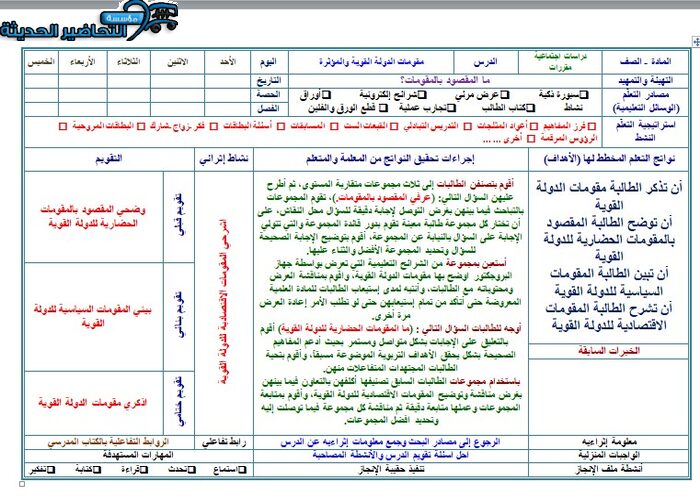 مؤسسة
التحاضير الحديثة
المادة - الصف
دراسات اجتماعية
مقررات
الدرس
مقومات الدولة القوية والمؤثرة
اليوم
الأحد
الاثنين
الثلاثاء
الأربعاء
الخميس
التهيئة والتمهيد
ما المقصود بالمقومات؟
التاريخ
مصادر التعلم
(الوسائل التعليمية)
سبورة ذكية
عرض مرئي
شرائح إلكترونية
أوراق
الحصة
نشاط
كتاب الطالب
تجارب عملية
قطع الورق والفلين
الفصل
استراتيجية التعلم
النشط
فرز المفاهيم
أعواد المثلجات
التدريس التبادلي
القبعات الست
المسابقات
أسئلة البطاقات
فكر ـزواج ـشارك
البطاقات المروحية
الرؤوس المرقمة
أخرى ... ....
نواتج التعلم المخطط لها (الأهداف)
إجراءات تحقيق النواتج من المعلمة والمتعلم
نشاط إثرائي
التقويم
أن تذكر الطالبة مقومات الدولة
القوية
أن توضح الطالبة المقصود
بالمقومات الحضارية للدولة
القوية
أن تبين الطالبة المقومات
السياسية للدولة القوية
أن تشرح الطالبة المقومات
الاقتصادية للدولة القوية
الخبرات السابقة
أقوم بتصنفن الطالبات إلى ثلاث مجموعات متقاربة المستوى، ثم أطرح
عليهن السؤال التالي: (عرفي المقصود بالمقومات.)، تقوم المجموعات
بالتباحث فيما بينهن بغرض التوصل لإجابة دقيقة للسؤال محل النقاش، على
أن تختار كل مجموعة طالبة معينة تقوم بدور قائدة المجموعة والتي تتولي
الإجابة على السؤال بالنيابة عن المجموعة، أقوم بتوضيح الإجابة الصحيحة
للسؤال وتحديد المجموعة الأفضل والثناء عليها.
أستعين بمجموعة من الشرائح التعليمية التي تعرض بواسطة جهاز
البروجكتور اوضح بها مقومات الدولة القوية، وأقوم بمناقشة العرض
ومحتوياته مع الطالبات، وأنتبه لمدى إستيعاب الطالبات للمادة العلمية
المعروضة حتى أتأكد من تمام إستيعابهن حتى لو تطلب الأمر إعادة العرض
مرة أخرى.
أوجه للطالبات السؤال التالي : (ما المقومات الحضارية للدولة القوية) أقوم
بالتعليق على الإجابات بشكل متواصل ومستمر بحيث أدعم المفاهيم
الصحيحة بشكل يحقق الأهداف التربوية الموضوعة مسبقاً، وأقوم بتحية
الطالبات المجتهدات المتفاعلات منهن.
باستخدام مجموعات الطالبات السابق تصنيفها أكلفهن بالتعاون فيما بينهن
بغرض مناقشة وتوضيح المقومات الاقتصادية للدولة القوية، وأقوم بمتابعة
المجموعات وعملها متابعة دقيقة ثم مناقشة كل مجموعة فيما توصلت إليه
وتحديد افضل المجموعات.
اشرحي المقومات الاقتصادية للدولة القوية
تقويم قبلي
وضحي المقصود بالمقومات
الحضارية للدولة القوية
تقويم بنائي
بيني المقومات السياسية للدولة
القوية
تقويم ختامي
اذكري مقومات الدولة القوية
معلومة إثراءيه
الرجوع إلى مصادر البحث وجمع معلومات إثراءيه عن الدرس
رابط تفاعلي
الروابط التفاعلية بالكتاب المدرسي
الواجبات المنزلية
احل اسئلة تقويم الدرس والأنشطة المصاحبة
المهارات المستهدفة
أنشطة ملف الإنجاز
تنفيذ حقيبة الإنجاز
استماع
تحدث
قراءة
كتابة
تفكير